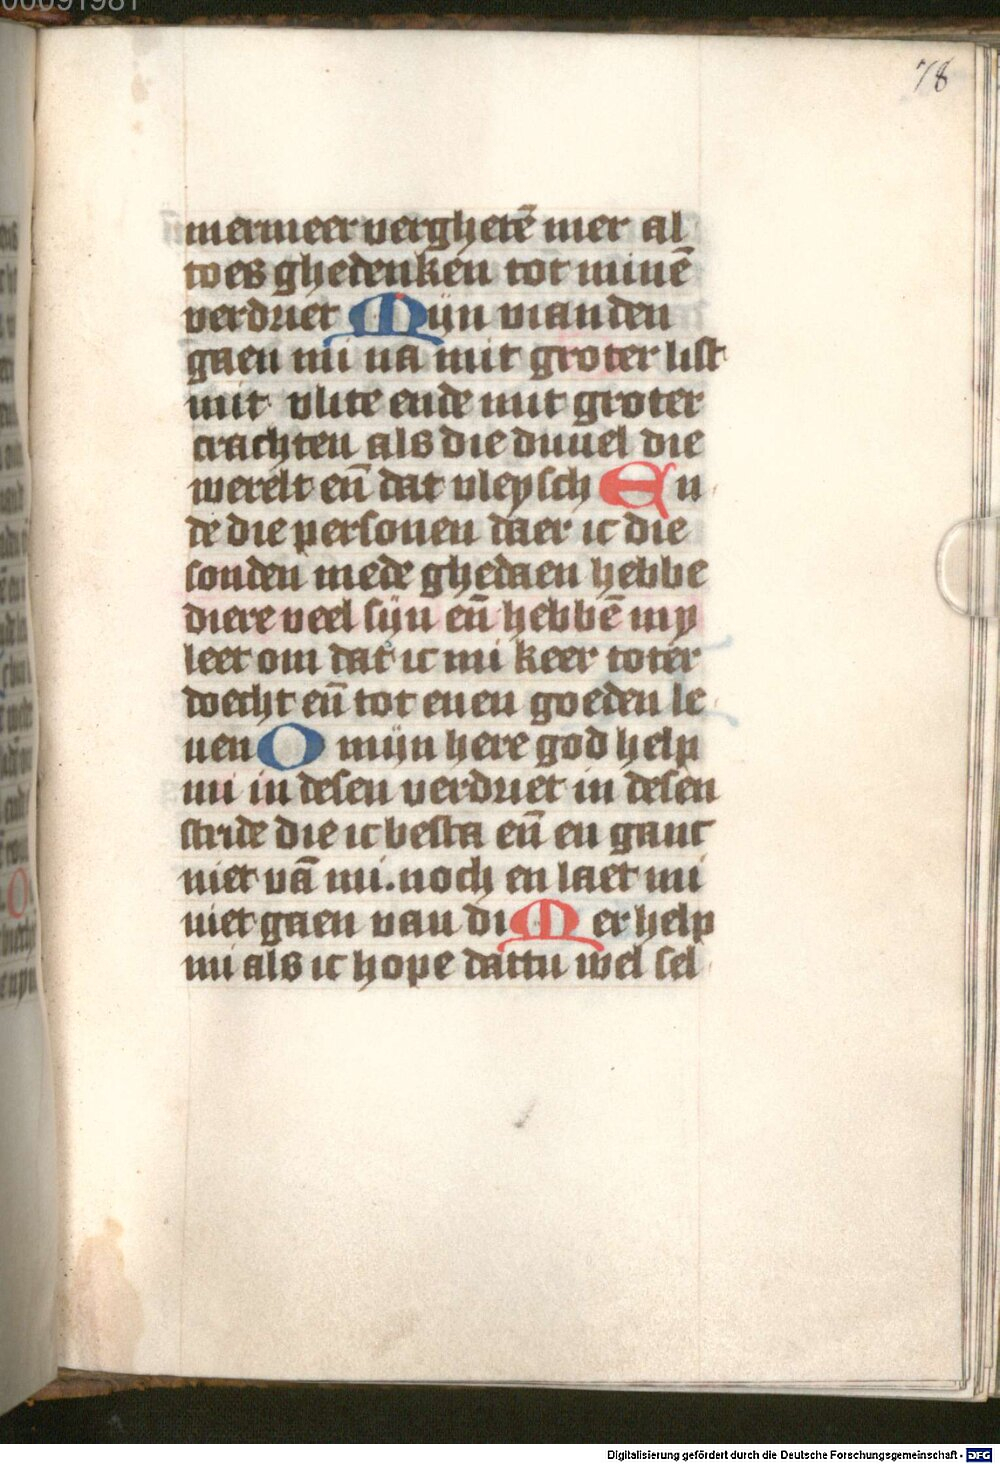 78
mermeer verghetē mer al
toes ghedenken tot minē
verdriet Mijn vianden
gaen mi na mit groter list
mit vlite ende mit groter
crachten als die duuel die
werelt en̄ dat vleysch En
de die personen daer ic die
sonden mede ghedaen hebbe
diere veel sijn en̄ hebbē my
leet om dat ic mi keer toter
doecht en̄ tot enen goeden le
uen O mijn here god help
mi in desen verdriet in desen
stride die ic besta en̄ en ganc
niet vā mi. noch en laet mi
niet gaen van di Mer help
mi als ic hope dattu wel sel
Digitalisierung gefördert durch die Deutsche Forschungsgemeinschaft - DFG